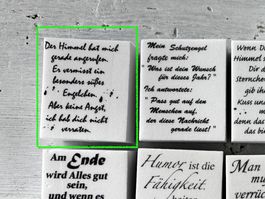 Der Himmel hat mich
gerade angerufen.
Er vermisst ein
besonders süßes
Engelchen.
Aber keine Angst,
ich hab dich nicht
verraten.
Mein Schutzengel
fragte mich:
"Was ist dein Wunsch
für dieses Jahr?"
Ich antwortete:
"Pass gut auf den
Menschen auf,
der diese Nachricht
gerade liest!"
Wenn D
Himmel s
Am Ende
wird Alles gut
sein,
und wenn es
Humor ist die
Fähigkeit
heiter
Man
mu
verrü